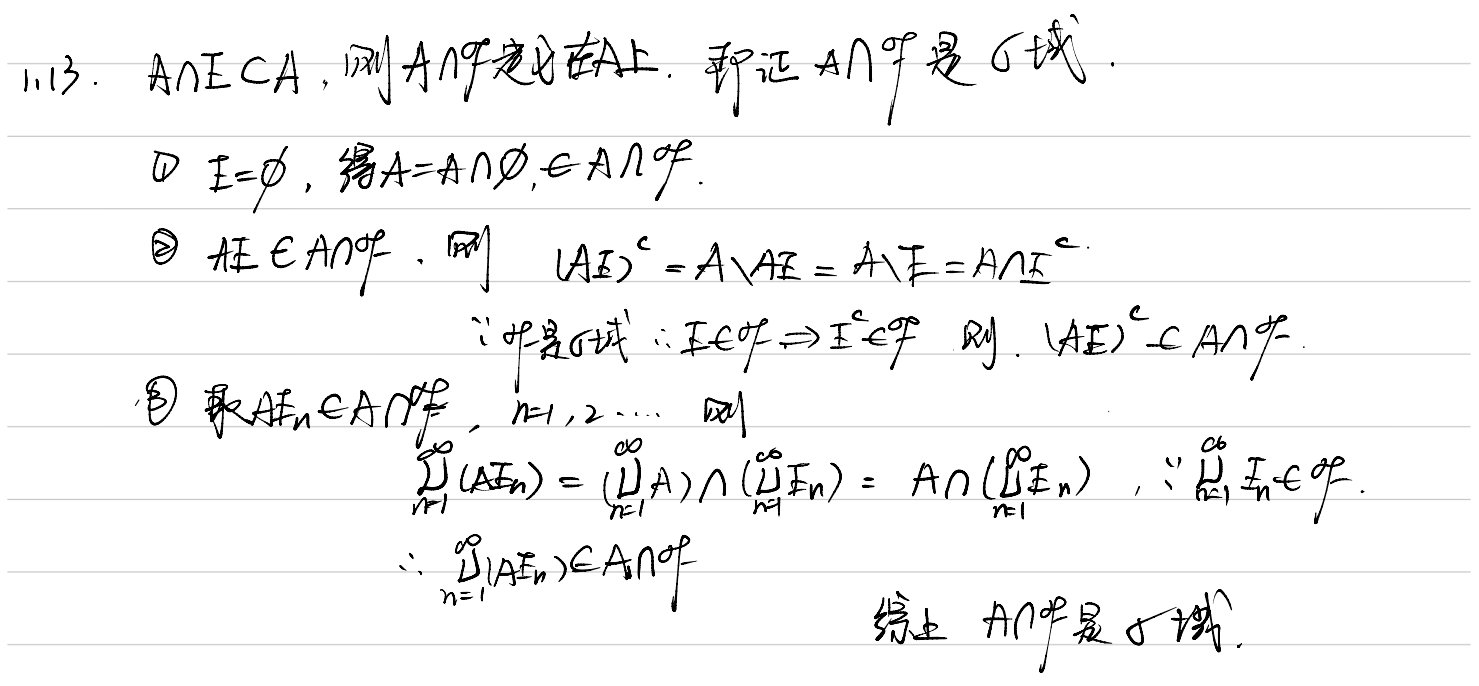 1.13. A∩E⊂A, 则A∩ℱ定义在A上. 即证 A∩ℱ是σ域.
① E=∅, 得A=A∩∅,∈A∩ℱ.
② AE∈A∩ℱ. 则 (AE)^c=A\AE=A\E=A∩E^c.
∵ℱ是σ域 ∴E∈ℱ⇒E^c∈ℱ 则. (AE)^c∈A∩ℱ.
③ 取AE_n∈A∩ℱ, n=1,2.... 则
⋃_{n=1}^∞(AE_n)=(⋃_{n=1}^∞A)∩(⋃_{n=1}^∞E_n)=A∩(⋃_{n=1}^∞E_n), ∵⋃_{n=1}^∞E_n∈ℱ.
∴ ⋃_{n=1}^∞(AE_n)∈A∩ℱ
综上 A∩ℱ是σ域.